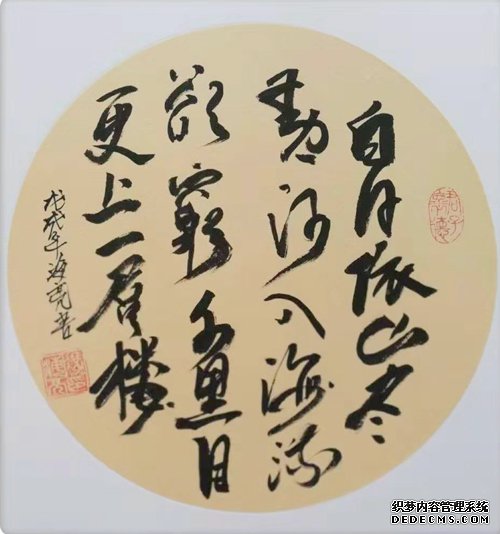 白日依山尽
黄河入海流
欲窮千里目
更上一层樓
戊戌年海亮书
织梦内容管理系统
DEDECMS.COM